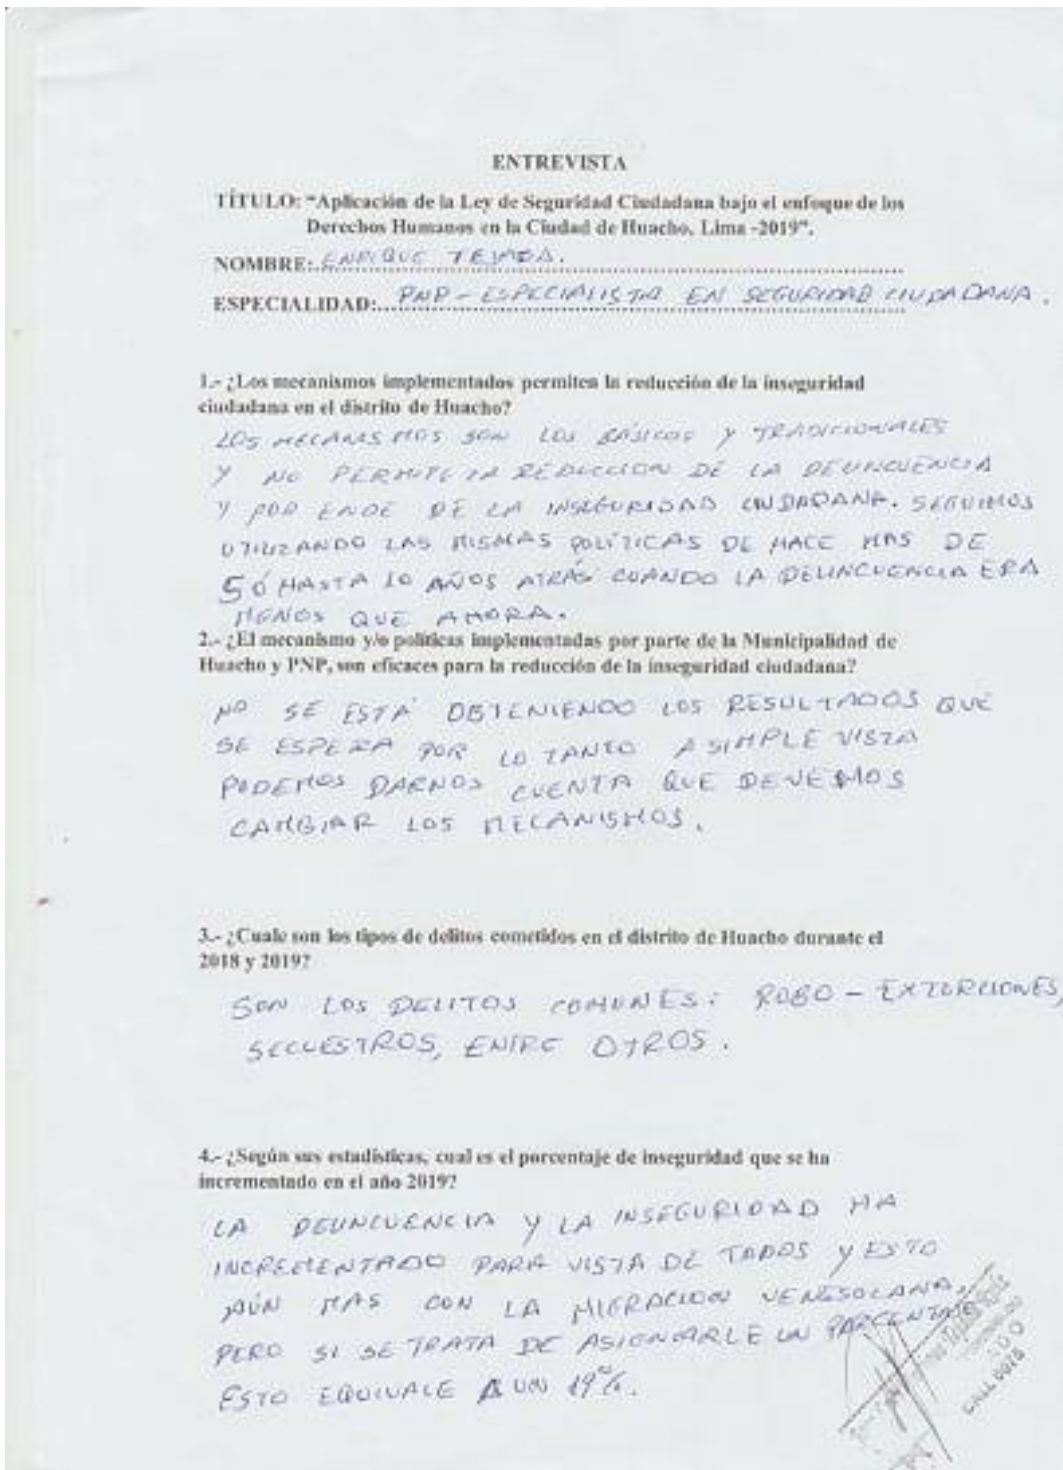 ENTREVISTA
TÍTULO: "Aplicación de la Ley de Seguridad Ciudadana bajo el enfoque de los
Derechos Humanos en la Ciudad de Huacho, Lima -2019".
NOMBRE: ENRIQUE TEJADA.
ESPECIALIDAD: PNP - ESPECIALISTA EN SEGURIDAD CIUDADANA.
1.- ¿Los mecanismos implementados permiten la reducción de la inseguridad
ciudadana en el distrito de Huacho?
LOS MECANISMOS SON LOS BÁSICOS Y TRADICIONALES
Y NO PERMITE LA REDUCCION DE LA DELINCUENCIA
Y POR ENDE DE LA INSEGURIDAD CIUDADANA. SEGUIMOS
UTILIZANDO LAS MISMAS POLÍTICAS DE HACE MAS DE
5 Ó HASTA 10 AÑOS ATRÁS CUANDO LA DELINCUENCIA ERA
MENOS QUE AHORA.
2.- ¿El mecanismo y/o políticas implementadas por parte de la Municipalidad de
Huacho y PNP, son eficaces para la reducción de la inseguridad ciudadana?
NO SE ESTÁ OBTENIENDO LOS RESULTADOS QUE
SE ESPERA POR LO TANTO A SIMPLE VISTA
PODEMOS DARNOS CUENTA QUE DEVEMOS
CAMBIAR LOS MECANISMOS.
3.- ¿Cuale son los tipos de delitos cometidos en el distrito de Huacho durante el
2018 y 2019?
SON LOS DELITOS COMUNES: ROBO - EXTORCIONES,
SECUESTROS, ENTRE OTROS.
4.- ¿Según sus estadísticas, cual es el porcentaje de inseguridad que se ha
incrementado en el año 2019?
LA DELINCUENCIA Y LA INSEGURIDAD HA
INCREMENTADO PARA VISTA DE TODOS Y ESTO
AÚN MAS CON LA MIGRACION VENESOLANA,
PERO SI SE TRATA DE ASIGNARLE UN PARCENTAJE
ESTO EQUIVALE A UN 19%.